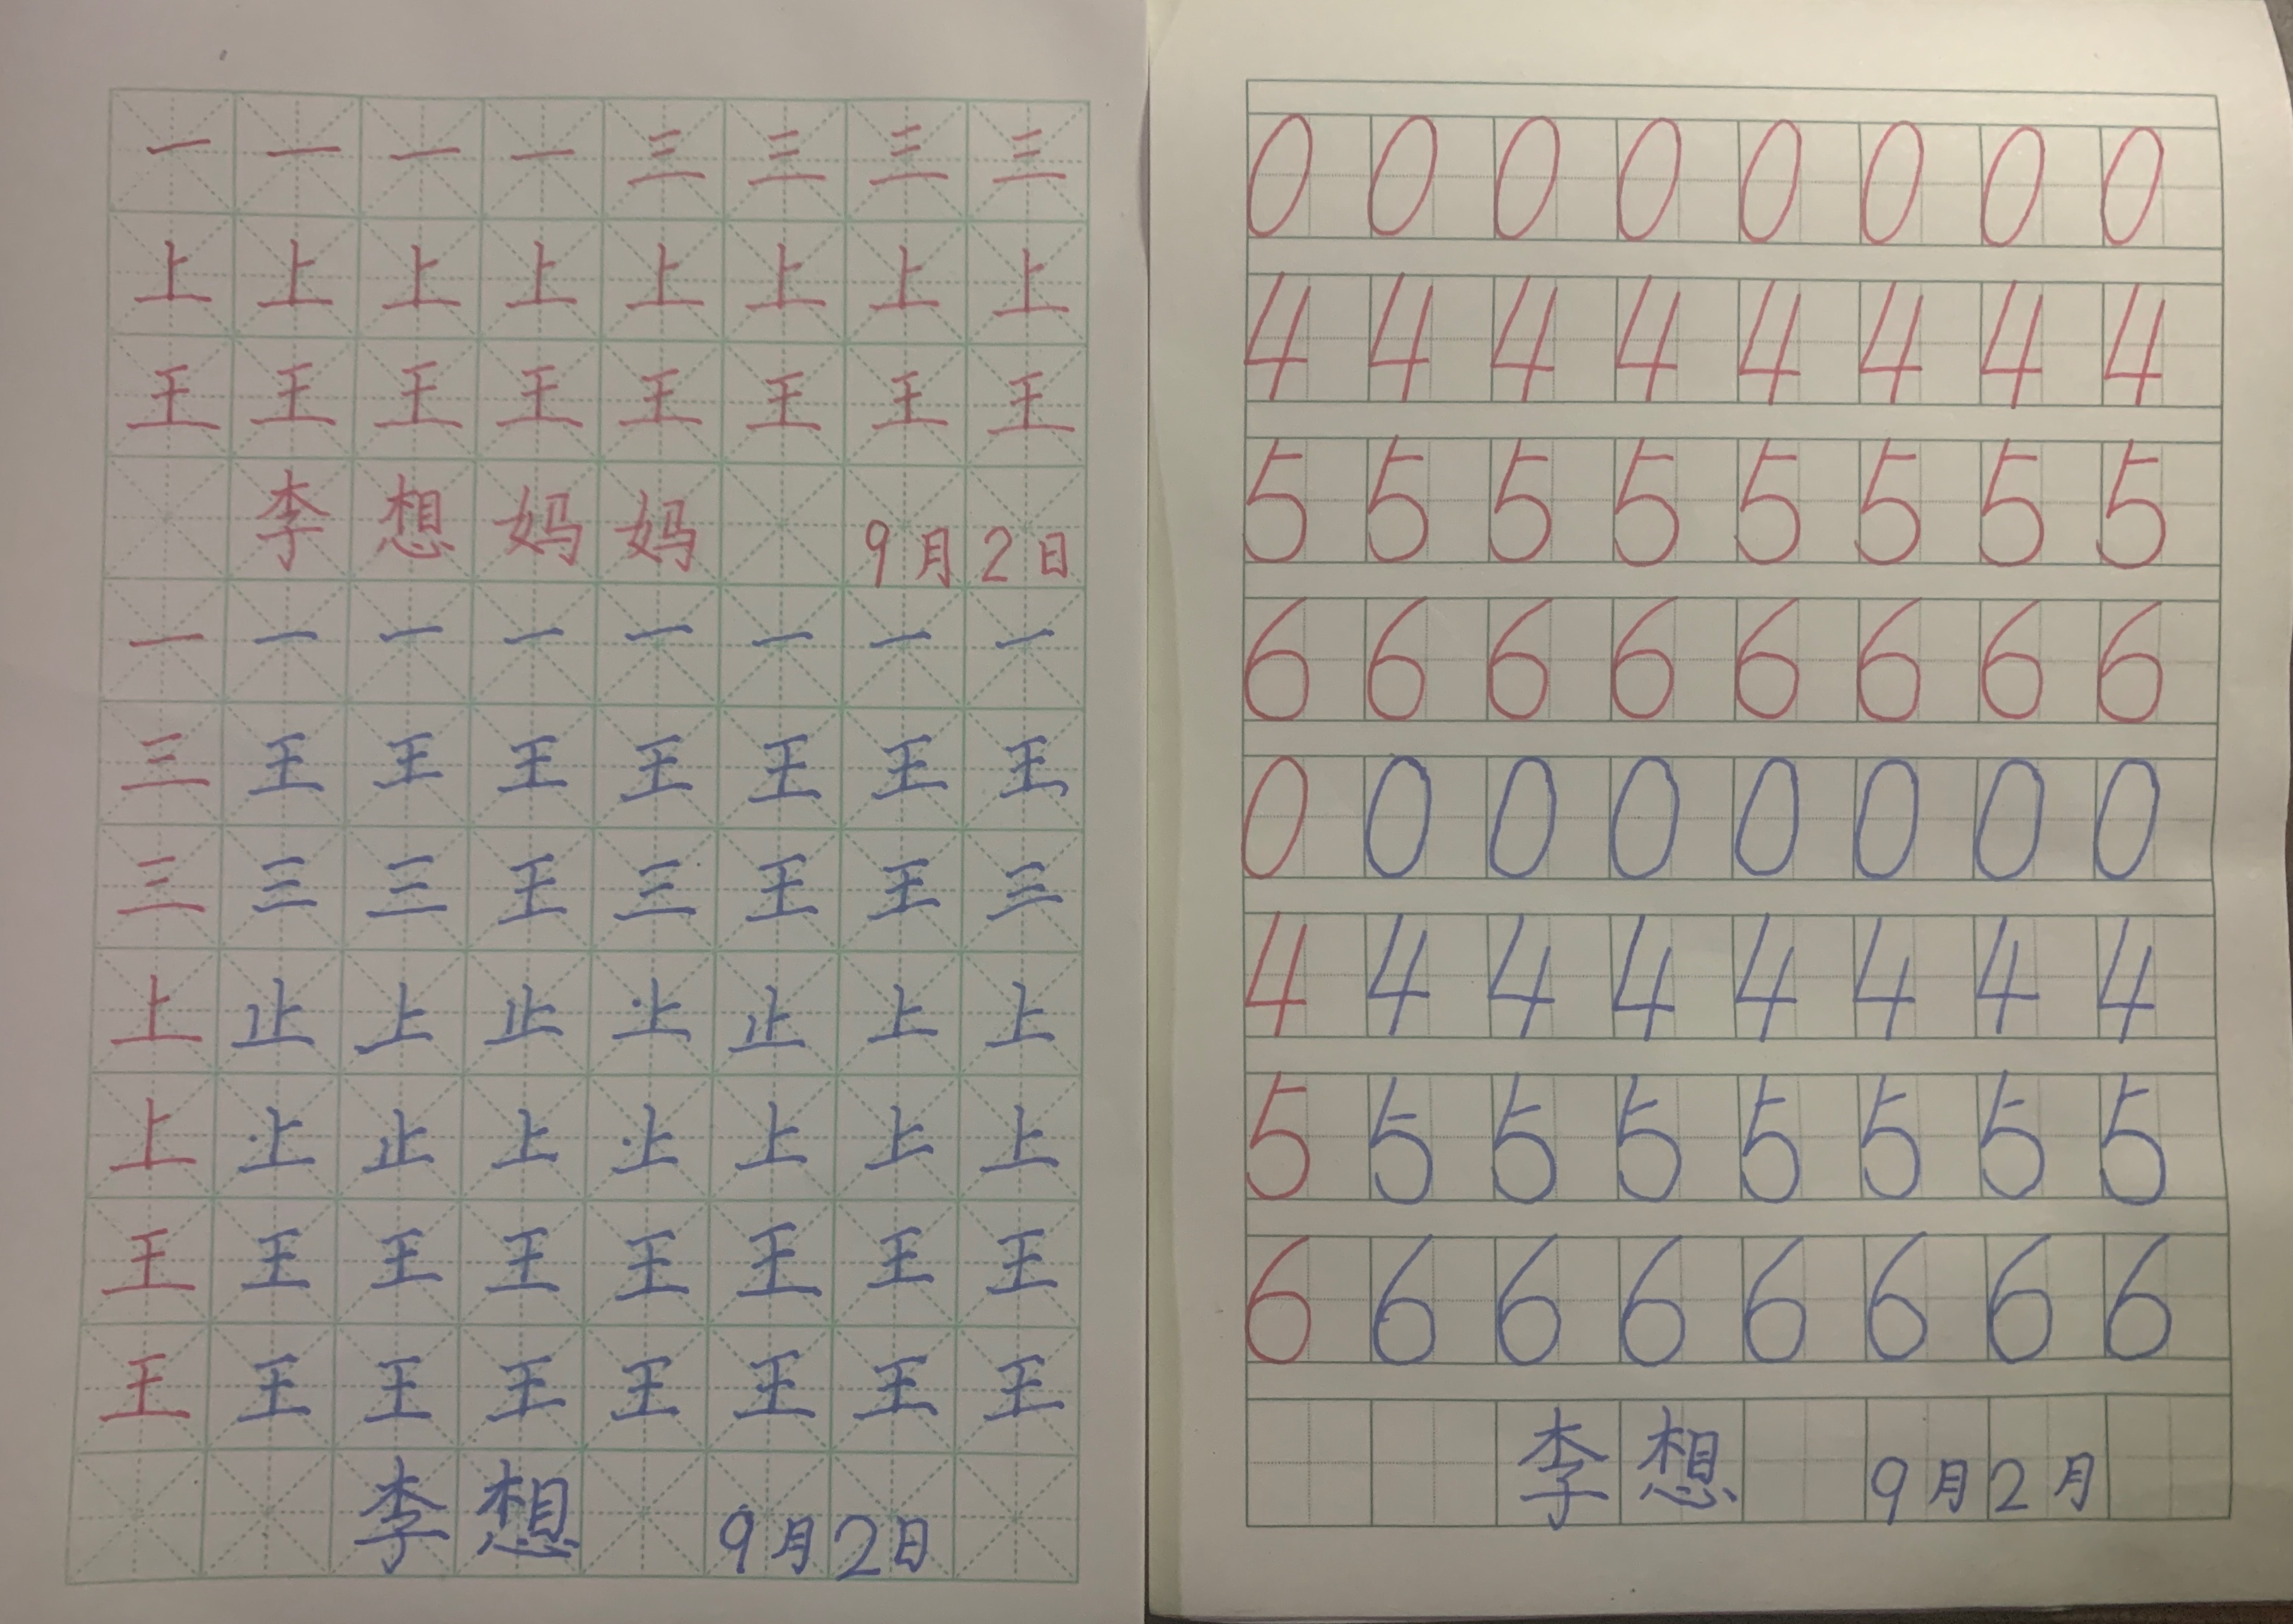 一 一 一 一 三 三 三 三
上 上 上 上 上 上 上 上
王 王 王 王 王 王 王 王
李 想 妈 妈 9月2日
一 一 一 一 一 一 一 一
三 王 王 王 王 王 王 王
三 三 三 王 三 王 王 三
上 止 上 止 上 止 上 上
上 上 止 上 上 上 上 上
王 王 王 王 王 王 王 王
王 王 王 王 王 王 王 王
李 想 9月2日
0 0 0 0 0 0 0 0
4 4 4 4 4 4 4 4
5 5 5 5 5 5 5 5
6 6 6 6 6 6 6 6
0 0 0 0 0 0 0 0
4 4 4 4 4 4 4 4
5 5 5 5 5 5 5 5
6 6 6 6 6 6 6 6
李 想 9月2月